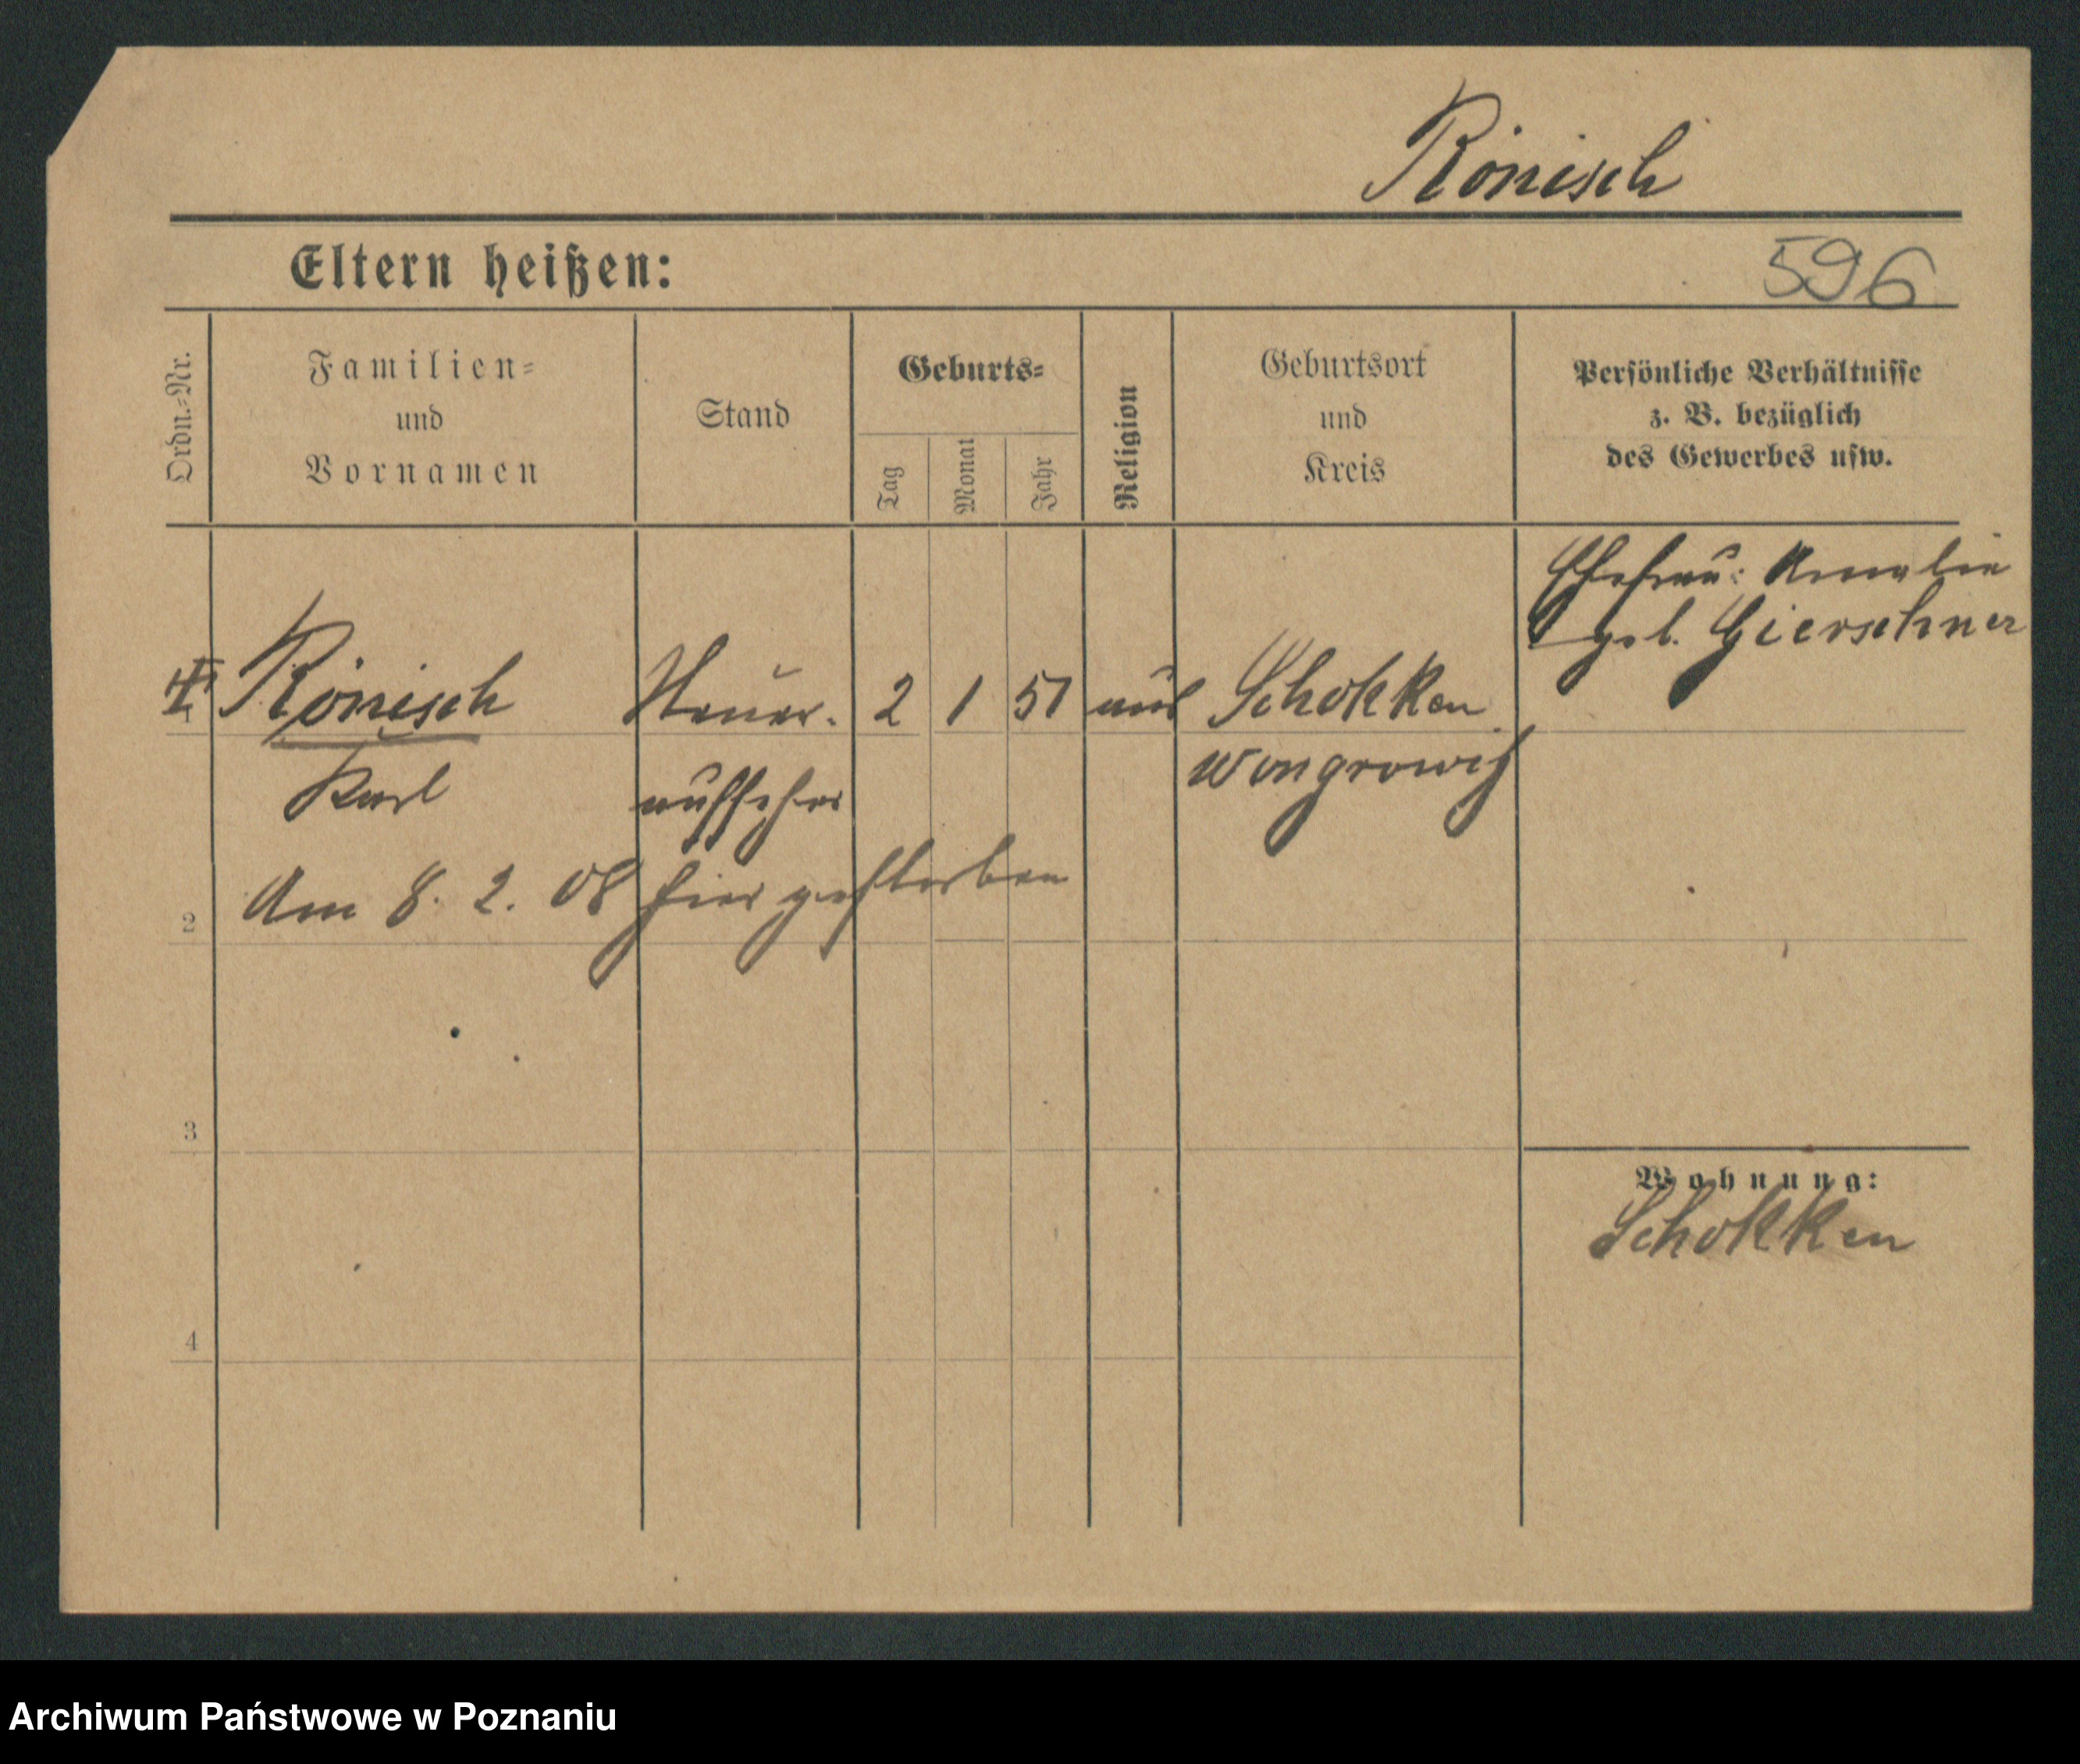 Rönisch
Eltern heißen:
596
Ordn.-Nr.
Familien-
und
Vornamen
Stand
Geburts-
Tag
Monat
Jahr
Religion
Geburtsort
und
Kreis
Persönliche Verhältnisse
z. B. bezüglich
des Gewerbes usw.
Ehefrau: Amalie
geb. Gierschner
1 Rönisch Steuer- 2 1 51 Schokken
Karl aufseher Wongrowitz
2 Am 8. 2. 08 hier gestorben
3
Wohnung:
Schokken
4
Archiwum Państwowe w Poznaniu